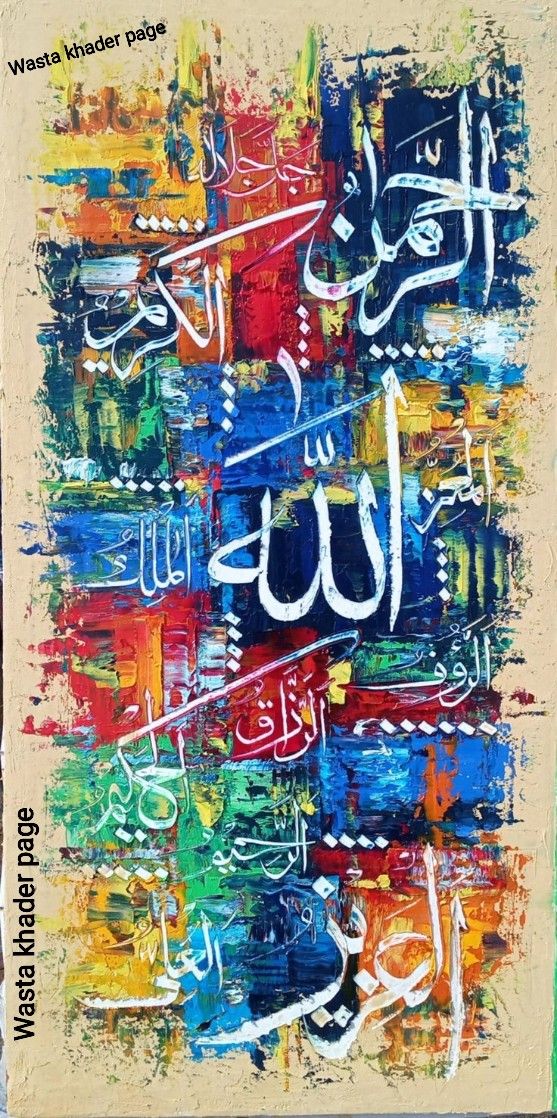 Wasta khader page
جل جلاله
الرَّحمٰن
الكريم
اللّٰه
المُعِزُّ
الملك
الرَّؤُف
الرَّزَّاق
الحكيم
الرحيم
العزيز
العلى
Wasta khader page